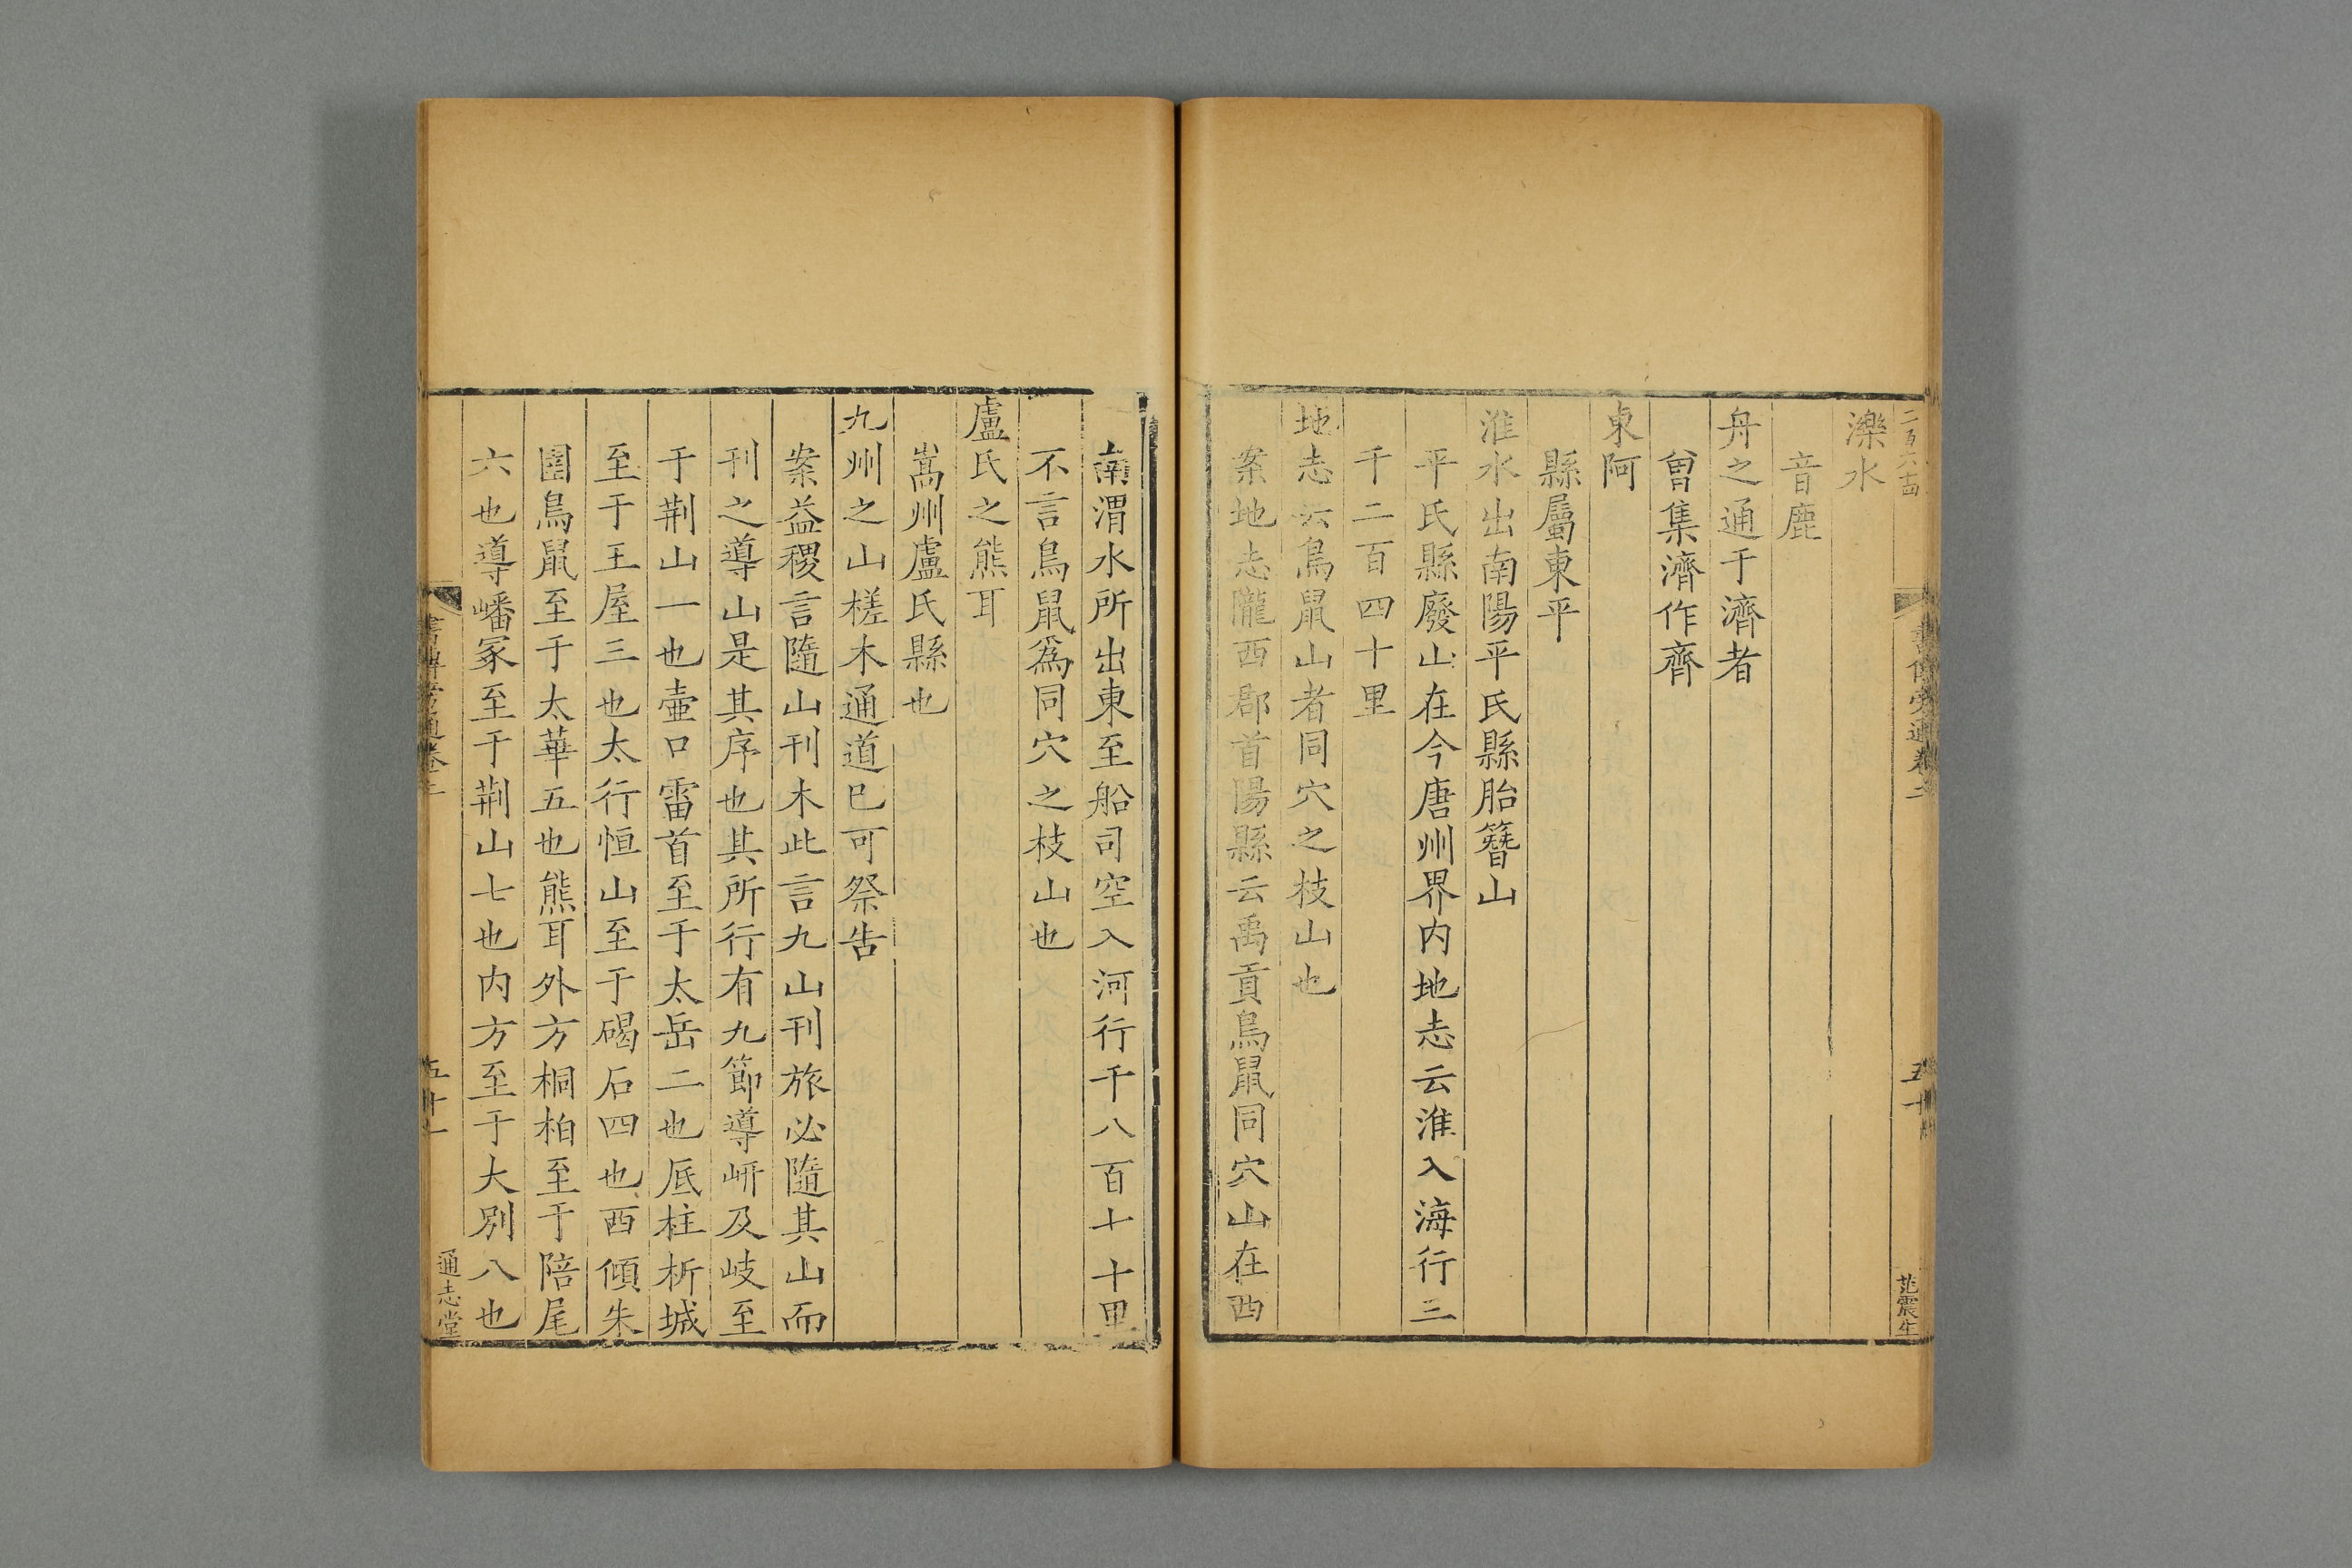 濼水
音鹿
舟之通于濟者
曾集濟作齊
東阿
縣屬東平
淮水出南陽平氏縣胎簪山
平氏縣廢山在今唐州界内地志云淮入海行三
千二百四十里
地志云鳥鼠山者同穴之枝山也
案地志隴西郡首陽縣云禹貢鳥鼠同穴山在西
南渭水所出東至船司空入河行千八百七十里
不言鳥鼠爲同穴之枝山也
盧氏之熊耳
嵩州盧氏縣也
九州之山槎木通道已可祭告
案益稷言隨山刊木此言九山刊旅必隨其山而
刊之導山是其序也其所行有九節導岍及岐至
于荆山一也壷口雷首至于太岳二也厎柱析城
至于王屋三也太行恒山至于碣石四也西傾朱
圉鳥鼠至于太華五也熊耳外方桐柏至于陪尾
六也導嶓冢至于荆山七也内方至于大别八也
通志堂